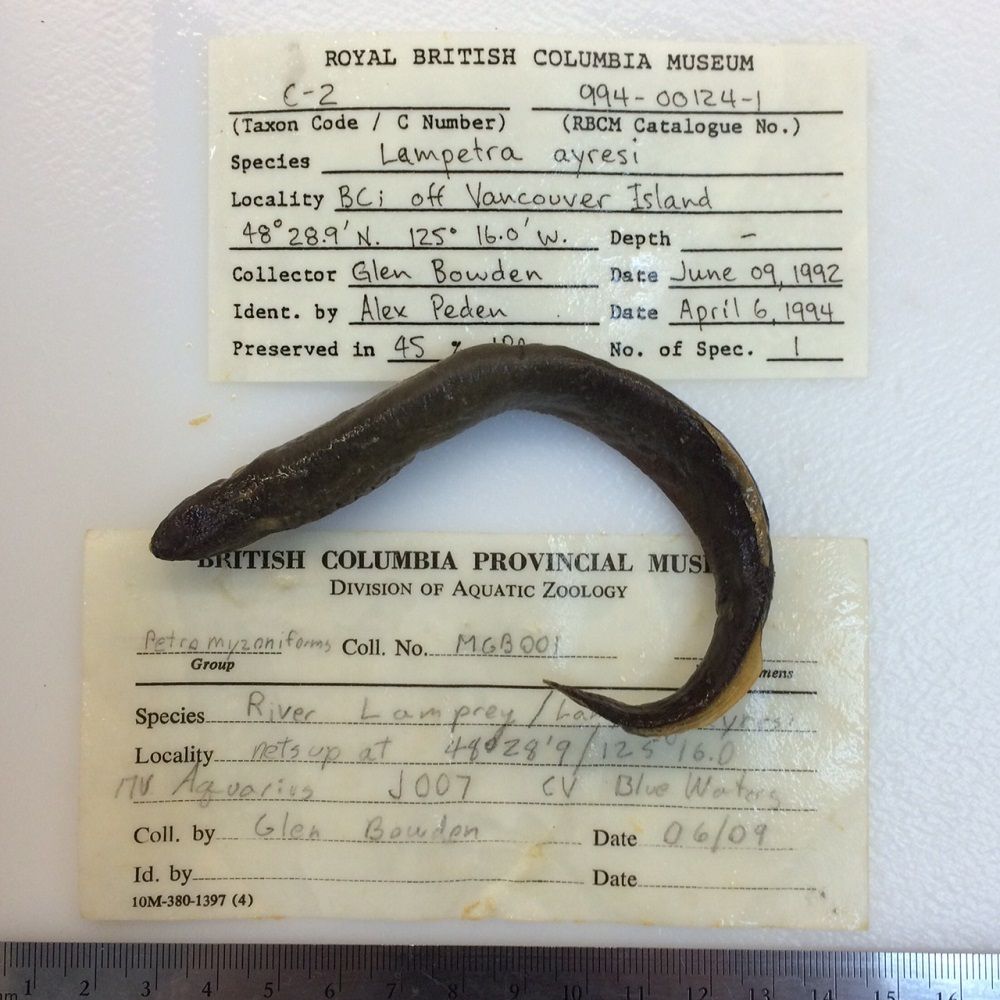 ROYAL BRITISH COLUMBIA MUSEUM
C-2 994-00124-1
(Taxon Code / C Number) (RBCM Catalogue No.)
Species Lampetra ayresi
Locality BC; off Vancouver Island
48° 28.9' N. 125° 16.0' W. Depth -
Collector Glen Bowden Date June 09, 1992
Ident. by Alex Peden Date April 6, 1994
Preserved in 45 % No. of Spec. 1
BRITISH COLUMBIA PROVINCIAL MUSE
DIVISION OF AQUATIC ZOOLOGY
Petromyzoniforms Coll. No. MGB001
Group mens
Species River Lamprey / Lam yresi
Locality nets up at 48°28'9 / 125°16.0
MV Aquarius J007 CV Blue Waters
Coll. by Glen Bowden Date 06/09
Id. by Date
10M-380-1397 (4)
mm 1 2 3 4 5 6 7 8 9 10 11 12 13 14 15 16